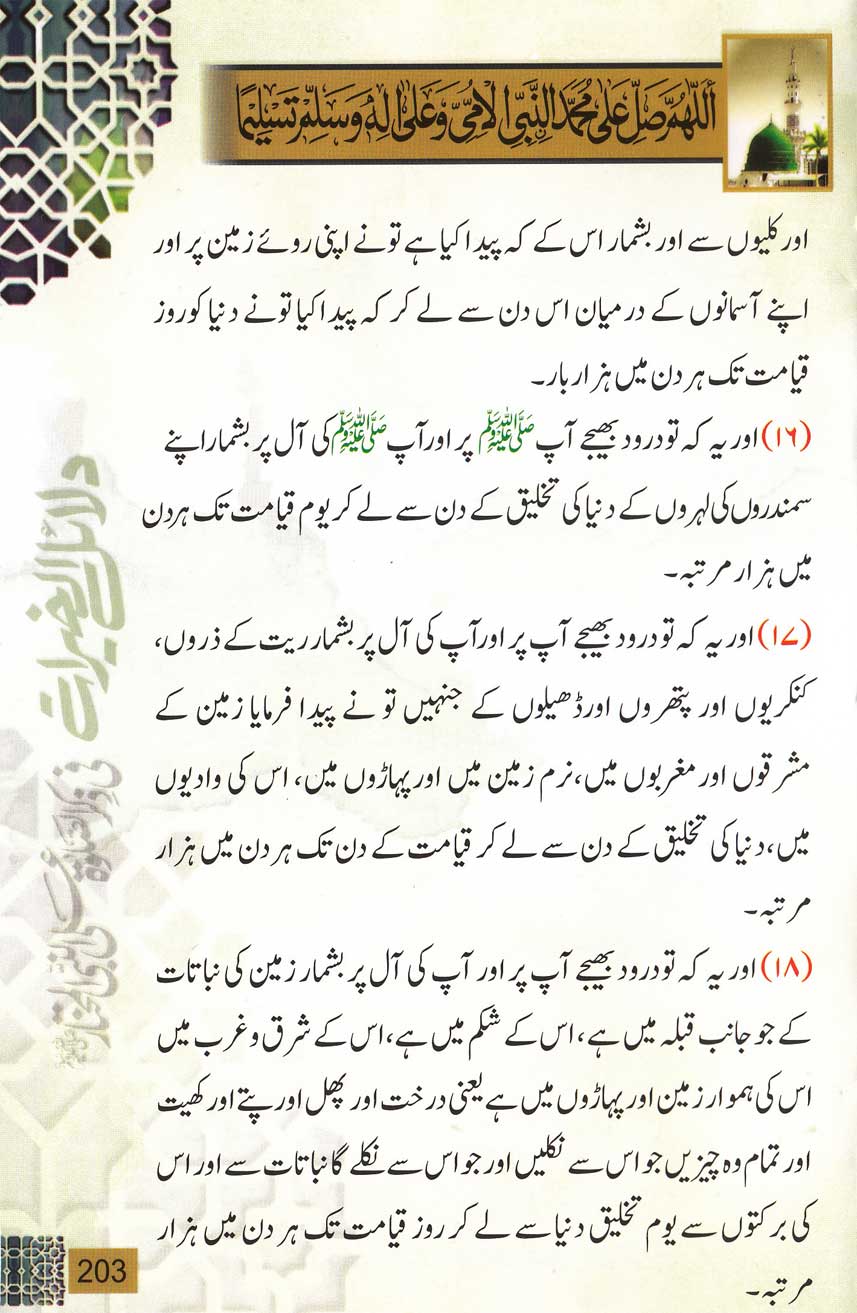 اَللّٰهُمَّ صَلِّ عَلٰی مُحَمَّدِ النَّبِیِّ الْاُمِّیِّ وَعَلٰی اٰلِهٖ وَسَلِّمْ تَسْلِیْمًا
اور کلیوں سے اور بشمار اس کے کہ پیدا کیا ہے تو نے اپنی روئے زمین پر اور
اپنے آسمانوں کے درمیان اس دن سے لے کر کہ پیدا کیا تو نے دنیا کو روز
قیامت تک ہر دن میں ہزار بار۔
(۱۶) اور یہ کہ تو درود بھیجے آپ ﷺ پر اور آپ ﷺ کی آل پر بشمار اپنے
سمندروں کی لہروں کے دنیا کی تخلیق کے دن سے لے کر یوم قیامت تک ہر دن
میں ہزار مرتبہ۔
(۱۷) اور یہ کہ تو درود بھیجے آپ پر اور آپ کی آل پر بشمار ریت کے ذروں،
کنکریوں اور پتھروں اور ڈھیلوں کے جنہیں تو نے پیدا فرمایا زمین کے
مشرقوں اور مغربوں میں، نرم زمین میں اور پہاڑوں میں، اس کی وادیوں
میں، دنیا کی تخلیق کے دن سے لے کر قیامت کے دن تک ہر دن میں ہزار
مرتبہ۔
(۱۸) اور یہ کہ تو درود بھیجے آپ پر اور آپ کی آل پر بشمار زمین کی نباتات
کے جو جانب قبلہ میں ہے، اس کے شکم میں ہے، اس کے شرق و غرب میں
اس کی ہموار زمین اور پہاڑوں میں ہے یعنی درخت اور پھل اور پتے اور کھیت
اور تمام وہ چیزیں جو اس سے نکلیں اور جو اس سے نکلے گا نباتات سے اور اس
کی برکتوں سے یوم تخلیق دنیا سے لے کر روز قیامت تک ہر دن میں ہزار
مرتبہ۔
دلائل الخیرات
فی ذکر الصلوٰۃ علی النبی المختار ﷺ
203